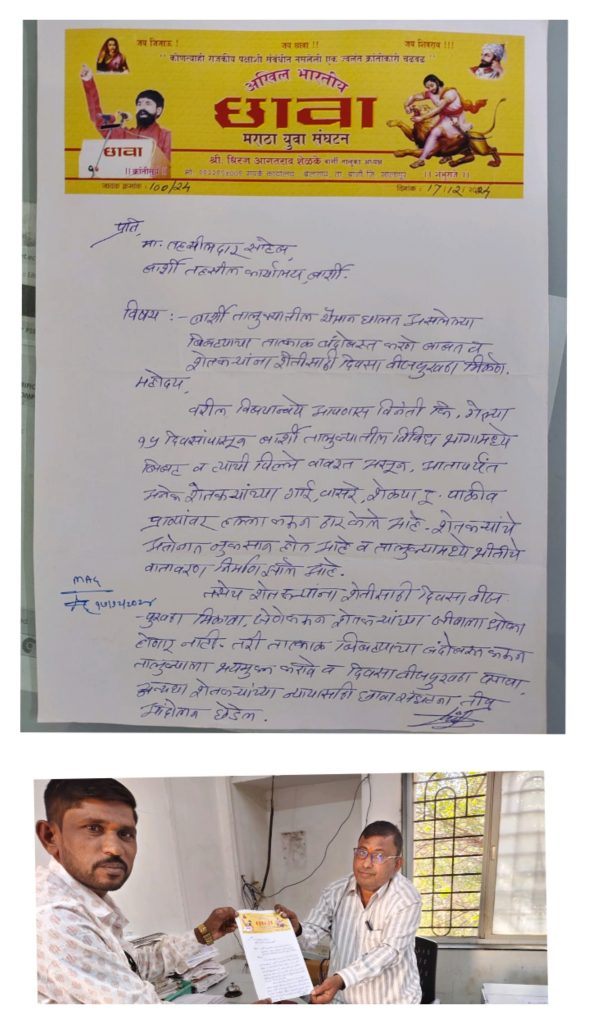 जय जिजाऊ !
जय छावा !!
जय शिवराय !!!
" कोणत्याही राजकीय पक्षाशी संबंधीत नसलेली एक ज्वलंत क्रांतीकारी चळवळ "
अखिल भारतीय
छावा
मराठा युवा संघटन
छावा
श्री. धिरज आगतराव शेळके बार्शी तालुका अध्यक्ष
।। क्रांतीसुर्य ।।
संपर्क कार्यालय
ता. बार्शी जि. सोलापूर
।। शंभुराजे ।।
जावक क्रमांक : 100/24
दिनांक : 17/12/2024
प्रति,
मा. तहसीलदार साहेब,
बार्शी तहसील कार्यालय, बार्शी.
विषय :- बार्शी तालुक्यातील थैमान घालत असलेल्या
बिबट्याचा तात्काळ बंदोबस्त करणे बाबत व
शेतकऱ्यांना शेतीसाठी दिवसा वीजपुरवठा मिळणे.
महोदय,
वरील विषयान्वये आपणास विनंती कि, गेल्या
१५ दिवसांपासून बार्शी तालुक्यातील विविध भागामध्ये
बिबट व त्याची पिल्ले वावरत असून, आतापर्यंत
अनेक शेतकऱ्यांच्या गाई, वासरे, शेळ्या इ. पाळीव
प्राण्यांवर हल्ला करून ठार केले आहे. शेतकऱ्यांचे
अतोनात नुकसान होत आहे व तालुक्यामध्ये भीतीचे
वातावरण निर्माण झाले आहे.
MAG
तसेच शेतकऱ्यांना शेतीसाठी दिवसा वीज
पुरवठा मिळावा, जेणेकरून शेतकऱ्यांच्या जीवाला धोका
होणार नाही. तरी तात्काळ बिबट्याचा बंदोबस्त करून
तालुक्याला भयमुक्त करावे व दिवसा वीजपुरवठा द्यावा,
अन्यथा शेतकऱ्यांच्या न्यायासाठी छावा संघटना तीव्र
आंदोलन छेडेल.